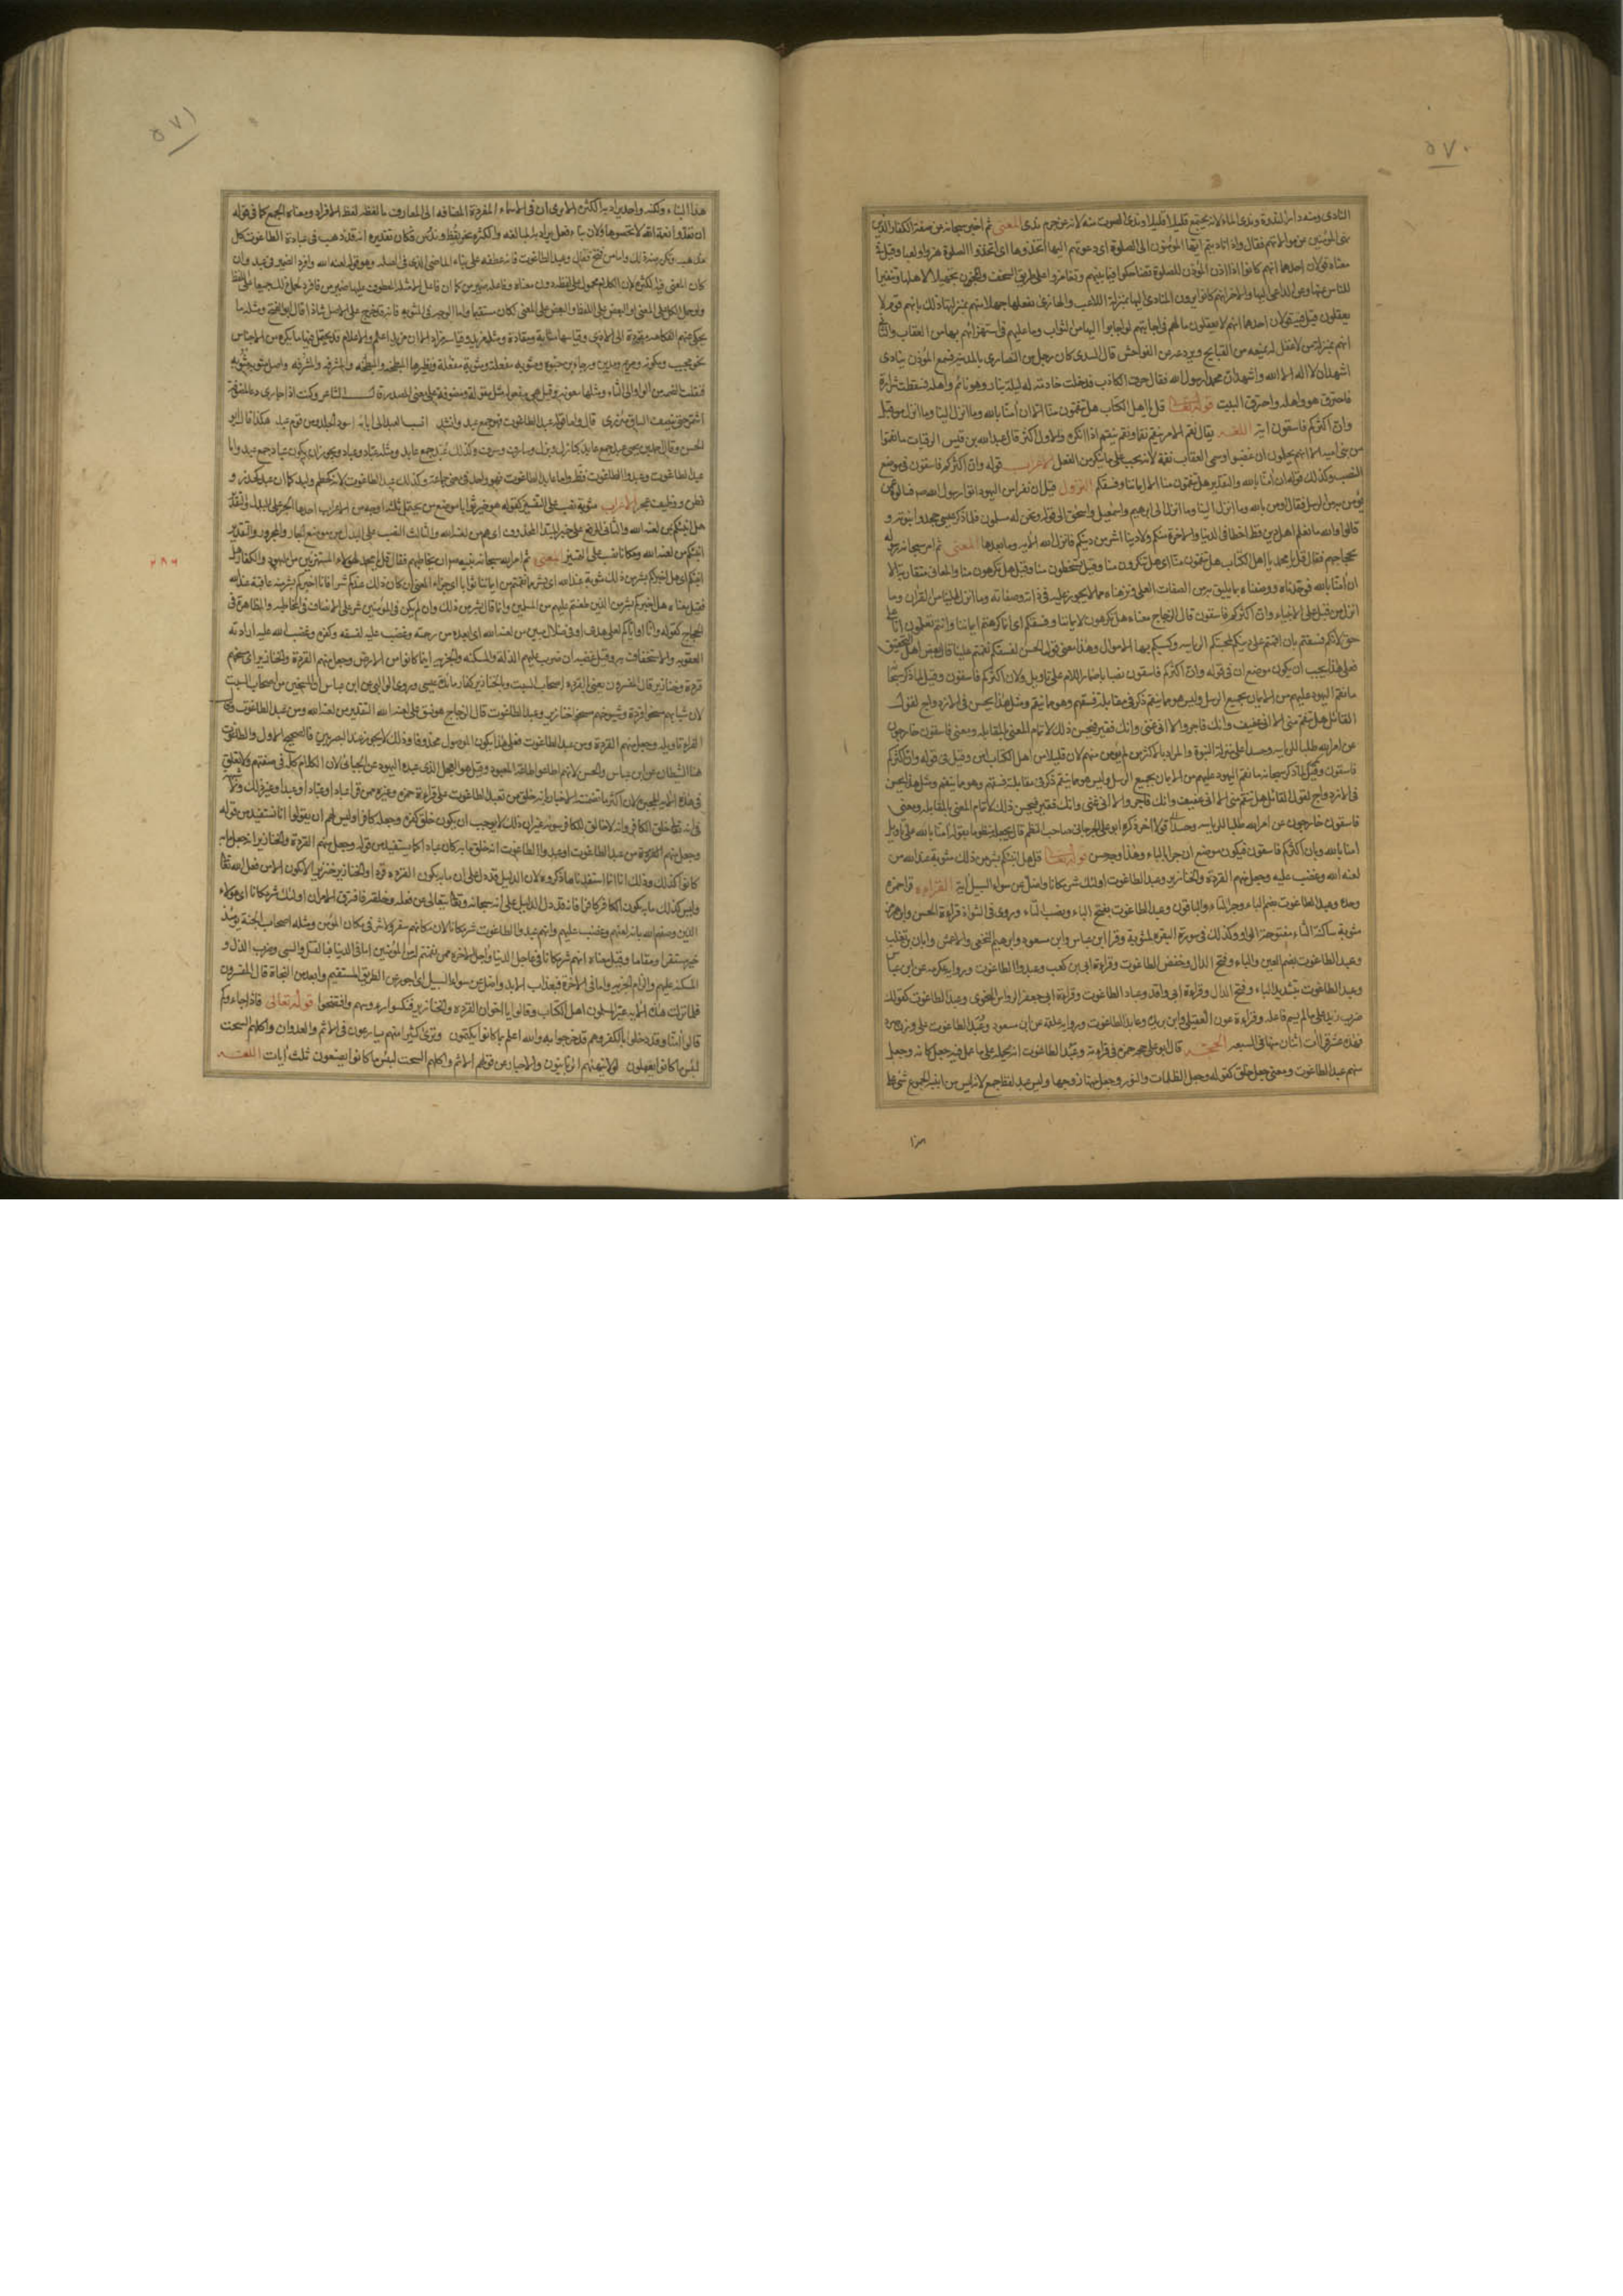 ٥٧٠
النادى ومنه دار الندوة وندى الماء لانه يجتمع قليلا قليلا وندى الصوت منه لانه عن جرم ندى المعنى ثم اخبر سبحانه عن صفة الكفار الذين
نهى المؤمنين عن موالاتهم فقال واذا ناديتم ايها المؤمنون الى الصلوة اى دعوتم اليها اتخذوها اى اتخذوا الصلوة هزوا ولعبا وقيل فى
معناه قولان احدهما انهم كانوا اذا اذن المؤذن للصلوة تضاحكوا فيما بينهم وتغامزوا على طريق السخف والمجون تجهيلا لاهلها وتنفيرا
للناس عنها وعن الداعى اليها والاخر انهم كانوا يرون المنادى اليها بمنزلة اللاعب والهازى بفعلها جهلا منهم بمنزلتها ذلك بانهم قوم لا
يعقلون قيل فيه قولان احدهما انهم لا يعقلون ما لهم فى اجابتهم لو اجابوا اليها من الثواب وما عليهم فى استهزائهم بها من العقاب والثانى
انهم بمنزلة من لا عقل له يمنعه من القبايح ويردعه عن الفواحش قال السدى كان رجل من النصارى بالمدينة فسمع المؤذن ينادى
اشهد ان لا اله الا الله واشهد ان محمدا رسول الله فقال حرق الكاذب فدخلت خادمته له ليلة بنار وهو نائم واهله فسقطت شرارة
فاحترق هو واهله واحترق البيت قوله تعالى قل يا اهل الكتاب هل تنقمون منا الا ان آمنا بالله وما انزل الينا وما انزل من قبل
وان اكثركم فاسقون آية اللغة يقال نقم الامر ينقم نقما ونقم ينقم اذا انكره والاول اكثر قال عبد الله بن قيس الرقيات ما نقموا
من بنى امية الا انهم يحلمون ان غضبوا وسمى العقاب نقمة لانه يجب على ما ينكر من الفعل الاعراب قوله وان اكثركم فاسقون فى موضع
النصب وكذلك قوله ان آمنا بالله والتقدير هل تنقمون منا الا ايماننا وفسقكم النزول قيل ان نفرا من اليهود اتوا رسول الله صم فسالوه عمن
يؤمن به من الرسل فقال اومن بالله وما انزل الينا وما انزل الى ابرهيم واسمعيل واسحق الى قوله ونحن له مسلمون فلما ذكر عيسى جحدوا نبوته و
قالوا والله ما نعلم اهل دين قط اخطأ فى الدنيا والاخرة منكم ولا دينا شرا من دينكم فانزل الله الآية وما بعدها المعنى ثم امر سبحانه رسوله
بحجاجهم فقال قل يا محمد يا اهل الكتاب هل تنقمون منا اى هل تنكرون منا وقيل تسخطون منا وقيل هل تكرهون منا والمعانى متقاربة الا
ان آمنا بالله فوحدناه ووصفناه بما يليق به من الصفات العلى ونزهناه عما لا يجوز عليه فى ذاته وصفاته وما انزل الينا من القرآن وما
انزل من قبل على الانبياء وان اكثركم فاسقون قال الزجاج معناه هل تكرهون الا ايماننا وفسقكم اى انما كرهتم ايماننا وانتم تعلمون انا على
حق لانكم فسقتم بان اقمتم على دينكم لمحبتكم الرياسة وكسبكم بها الاموال وهذا معنى قول الحسن لفسقكم نقمتم علينا قال بعض اهل التحقيق
فعلى هذا يجب ان يكون موضع ان فى قوله وان اكثركم فاسقون نصبا باضمار اللام على تاويل ولان اكثركم فاسقون وقيل لما ذكر سبحانه
ما نقم اليهود عليهم من الايمان بجميع الرسل وليس هو مما ينقم ذكر فى مقابلته فسقهم وهو مما ينقم ومثل هذا يحسن فى الازدواج لقول
القائل هل تنقم منى الا انى عفيف وانك فاجر والا انى غنى وانك فقير فيحسن ذلك لاتمام المعنى بالمقابلة ومعنى فاسقون خارجون
عن امر الله طلبا للرياسة وحسدا على منزلة النبوة والمراد بالاكثر من لم يؤمن منهم لان قليلا من اهل الكتاب آمن وقيل فى قوله وان اكثركم
فاسقون وقيل لما ذكر سبحانه ما نقم اليهود عليهم من الايمان بجميع الرسل وليس هو مما ينقم ذكر فى مقابلته فسقهم وهو مما ينقم ومثل هذا يحسن
فى الازدواج لقول القائل هل تنقم منى الا انى عفيف وانك فاجر والا انى غنى وانك فقير فيحسن ذلك لاتمام المعنى بالمقابلة ومعنى
فاسقون خارجون عن امر الله طلبا للرياسة وحسدا قول اخر ذكره ابو على الجرجانى صاحب النظم قال يجعله منظوما بقوله آمنا بالله على تاويل
آمنا بالله وبان اكثركم فاسقون فيكون موضع ان جرا بالباء وهذا وجه حسن قوله تعالى قل هل انبئكم بشر من ذلك مثوبة عند الله من
لعنه الله وغضب عليه وجعل منهم القردة والخنازير وعبد الطاغوت اولئك شر مكانا واضل عن سواء السبيل آية القراءة قرأ حمزة
وحده وعبد الطاغوت بضم الباء وجر التاء والباقون وعبد الطاغوت بفتح الباء ونصب التاء وروى فى الشواذ قراءة الحسن وابن هرمز
مثوبة ساكنة الثاء مفتوحة الواو وكذلك فى سورة البقرة لمثوبة وقرأ ابن عباس وابن مسعود وابرهيم النخعى والاعمش وابان بن تغلب
وعبد الطاغوت بضم العين والباء وفتح الدال وخفض الطاغوت وقراءة ابى بن كعب وعبدوا الطاغوت ورواية عكرمة عن ابن عباس
وعبد الطاغوت بتشديد الباء وفتح الدال وقراءة ابى واقد وعباد الطاغوت وقراءة ابى جعفر الرواسى النحوى وعبد الطاغوت كقولك
ضرب زيد على ما لم يسم فاعله وقراءة عون العقيلى وابن بريدة وعابد الطاغوت ورواية علقمة عن ابن مسعود وعبد الطاغوت على وزن صرد
فهذه عشر قراآت اثنان منها فى السبعة الحجة قال ابو على حجة حمزة فى قراءته وعبد الطاغوت انه يحمله على ما عمل فيه جعل كانه وجعل
منهم عبد الطاغوت ومعنى جعل خلق كقوله وجعل الظلمات والنور وجعل منها زوجها وليس عبد لفظ جمع لانه ليس من ابنية الجموع شئ على
هذا
٥٧١
هذا البناء ولكنه واحد يراد به الكثرة الا ترى ان فى الاسماء المفردة المضافة الى المعارف ما لفظه لفظ الافراد ومعناه الجمع كما فى قوله
ان تعدوا نعمة الله لا تحصوها ولان بناء فعل يراد به المبالغة والكثرة نحو يقظ وندس فكان تقديره انه قد ذهب فى عبادة الطاغوت كل
مذهب وتكرر منه ذلك واما من فتح فقال وعبد الطاغوت فانه عطفه على بناء الماضى الذى فى الصلة وهو قوله لعنه الله وافرد الضمير فى عبد وان
كان المعنى فيه الكثرة لان الكلام محمول على لفظ من دون معناه وفاعله ضمير من كما ان فاعل الامثلة المعطوف عليها ضمير من فافرد لحمل ذلك جميعا على اللفظ
ولو حمل الكل على المعنى او البعض على اللفظ والبعض على المعنى لكان مستقيما واما الوجه فى المثوبة فانه قد خرج على الاصل شاذا قال ابو الفتح ومثله ما
يحكى عنهم الفكاهة مقودة الى الاذى وقياسها مثابة ومقادة ومثله مزيد وقياسه مزاد الا ان مزيدا علم والاعلام قد يحتمل فيها ما يكره من الاجناس
نحو محبب ومكوزة ومريم ومدين ورجاء بن حيوة ومثوبة مفعلة ومثوبة مفعلة ونظيرها المبطخة والمبطخة والمشرقة والمشرقة واصل مثوبة مثوبة
فنقلت الضمة من الواو الى الثاء ومثلها معونة وقيل هى مفعولة مثل مقولة ومضوفة على معنى المصدر قال الشاعر وكنت اذا جارى دعا لمضوفة
اشمر حتى ينصف الساق مئزرى قال واما قوله عبد الطاغوت فهو جمع عبد وانشد انسب العبد الى آبائه اسود الجلد من قوم عبد هكذا قال ابو
الحسن وقال احمد بن يحيى عبد جمع عابد كبازل وبزل وشارف وشرف وكذلك عبد جمع عابد ومثله عباد وعباد ويجوز ان يكون عباد جمع عبد واما
عبد الطاغوت وعبدوا الطاغوت فظاهر واما عابد الطاغوت فهو واحد فى معنى جماعة وكذلك عبد الطاغوت لانه كحطم ولبد كما ان عبد كحذر و
فطن ووظيف عجر الاعراب مثوبة نصب على التفسير كقوله هو خير ثوابا موضع من يحتمل ثلثة اوجه من الاعراب احدها الجر على البدل والتقدير
هل انبئكم بمن لعنه الله والثانى الرفع على خبر المبتدأ المحذوف اى هم من لعنه الله والثالث النصب على البدل من موضع الجار والمجرور والتقدير
انبئكم من لعنه الله ومكانا نصب على التفسير المعنى ثم امر الله سبحانه نبيه ص ان يخاطبهم فقال قل يا محمد لهؤلاء المستهزئين من اليهود والكفار هل
انبئكم اى هل اخبركم بشر من ذلك مثوبة عند الله اى بشر مما نقمتم من ايماننا ثوابا اى جزاء المعنى ان كان ذلك عندكم شرا فانا اخبركم بشر منه عاقبة عند الله
فقيل معناه هل اخبركم بشر من الذين طعنتم عليهم من المسلمين وانما قال بشر من ذلك وان لم يكن فى المؤمنين شر على الانصاف فى المخاطبة والمظاهرة فى
الحجاج كقوله وانا او اياكم لعلى هدى او فى ضلال مبين من لعنه الله اى ابعده من رحمته وغضب عليه لفسقه وكفره وغضب الله عليه ارادته
العقوبة والاستخفاف به وقيل غضبه ان ضرب عليهم الذلة والمسكنة والجزية اينما كانوا من الارض وجعل منهم القردة والخنازير اى مسخهم
قردة وخنازير قال المفسرون يعنى القردة اصحاب السبت وبالخنازير كفار مائدة عيسى وروى الوالبى عن ابن عباس ان الممسوخين من اصحاب السبت
لان شبابهم مسخوا قردة وشيوخهم مسخوا خنازير وعبد الطاغوت قال الزجاج هو نسق على لعنه الله التقدير من لعنه الله ومن عبد الطاغوت وقال
الفراء تاويله وجعل منهم القردة ومن عبد الطاغوت فعلى هذا يكون الموصول محذوفا وذلك لا يجوز عند البصريين فالصحيح الاول والطاغوت
هنا الشيطان عن ابن عباس والحسن لانهم اطاعوا طاعة المعبود وقيل هو العجل الذى عبده اليهود عن الجبائى لان الكلام كله فى صفتهم ولا تعلق
فى هذه الآية للمجبرة لان اكثر ما تضمنته الاخبار بانه خلق من يعبد الطاغوت على قراءة حمزة وغيره ممن قرأ عباد او عبد او عبدا وغير ذلك ولا شبهة
فى انه تعالى خلق الكافر وانه لا خالق للكافر سواه غير ان ذلك لا يوجب ان يكون خلق كفره وجعله كافرا وليس لهم ان يقولوا انا نستفيد من قوله
وجعل منهم القردة من عبد الطاغوت او عبدوا الطاغوت انه خلق ما به كان عابدا كما نستفيد من قوله وجعل منهم القردة والخنازير انه جعل ما به
كانوا كذلك وذلك انا انما استفدنا ما ذكروه لان الدليل قد دل على ان ما به يكون القردة قردا والخنازير خنزيرا لا يكون الا من فعل الله تعالى
وليس كذلك ما به يكون الكافر كافرا فانه قد دل الدليل على انه سبحانه وتعالى يتعالى عن فعله وخلقه فافترق الامران اولئك شر مكانا اى هؤلاء
الذين وصفهم الله بانه لعنهم وغضب عليهم وانهم عبدوا الطاغوت شر مكانا لان مكانهم سقر ولا شر فى مكان المؤمن ومثله اصحاب الجنة يومئذ
خير مستقرا ومقاما وقيل معناه انهم شر مكانا فى عاجل الدنيا واجل الاخرة ممن نقمتم من المؤمنين اما فى الدنيا فبالقتل والسبى وضرب الذل و
المسكنة عليهم والزام الجزية واما فى الاخرة فبعذاب الابد واضل عن سواء السبيل اى اجوز عن الطريق المستقيم وابعد من النجاة قال المفسرون
فلما نزلت هذه الآية عير المسلمون اهل الكتاب وقالوا يا اخوان القردة والخنازير فنكسوا رءوسهم وافتضحوا قوله تعالى فاذا جاءوكم
قالوا آمنا وقد دخلوا بالكفر وهم قد خرجوا به والله اعلم بما كانوا يكتمون وترى كثيرا منهم يسارعون فى الاثم والعدوان واكلهم السحت
لبئس ما كانوا يعملون لولا ينهاهم الربانيون والاحبار عن قولهم الاثم واكلهم السحت لبئس ما كانوا يصنعون ثلث آيات اللغة
٢٨٦